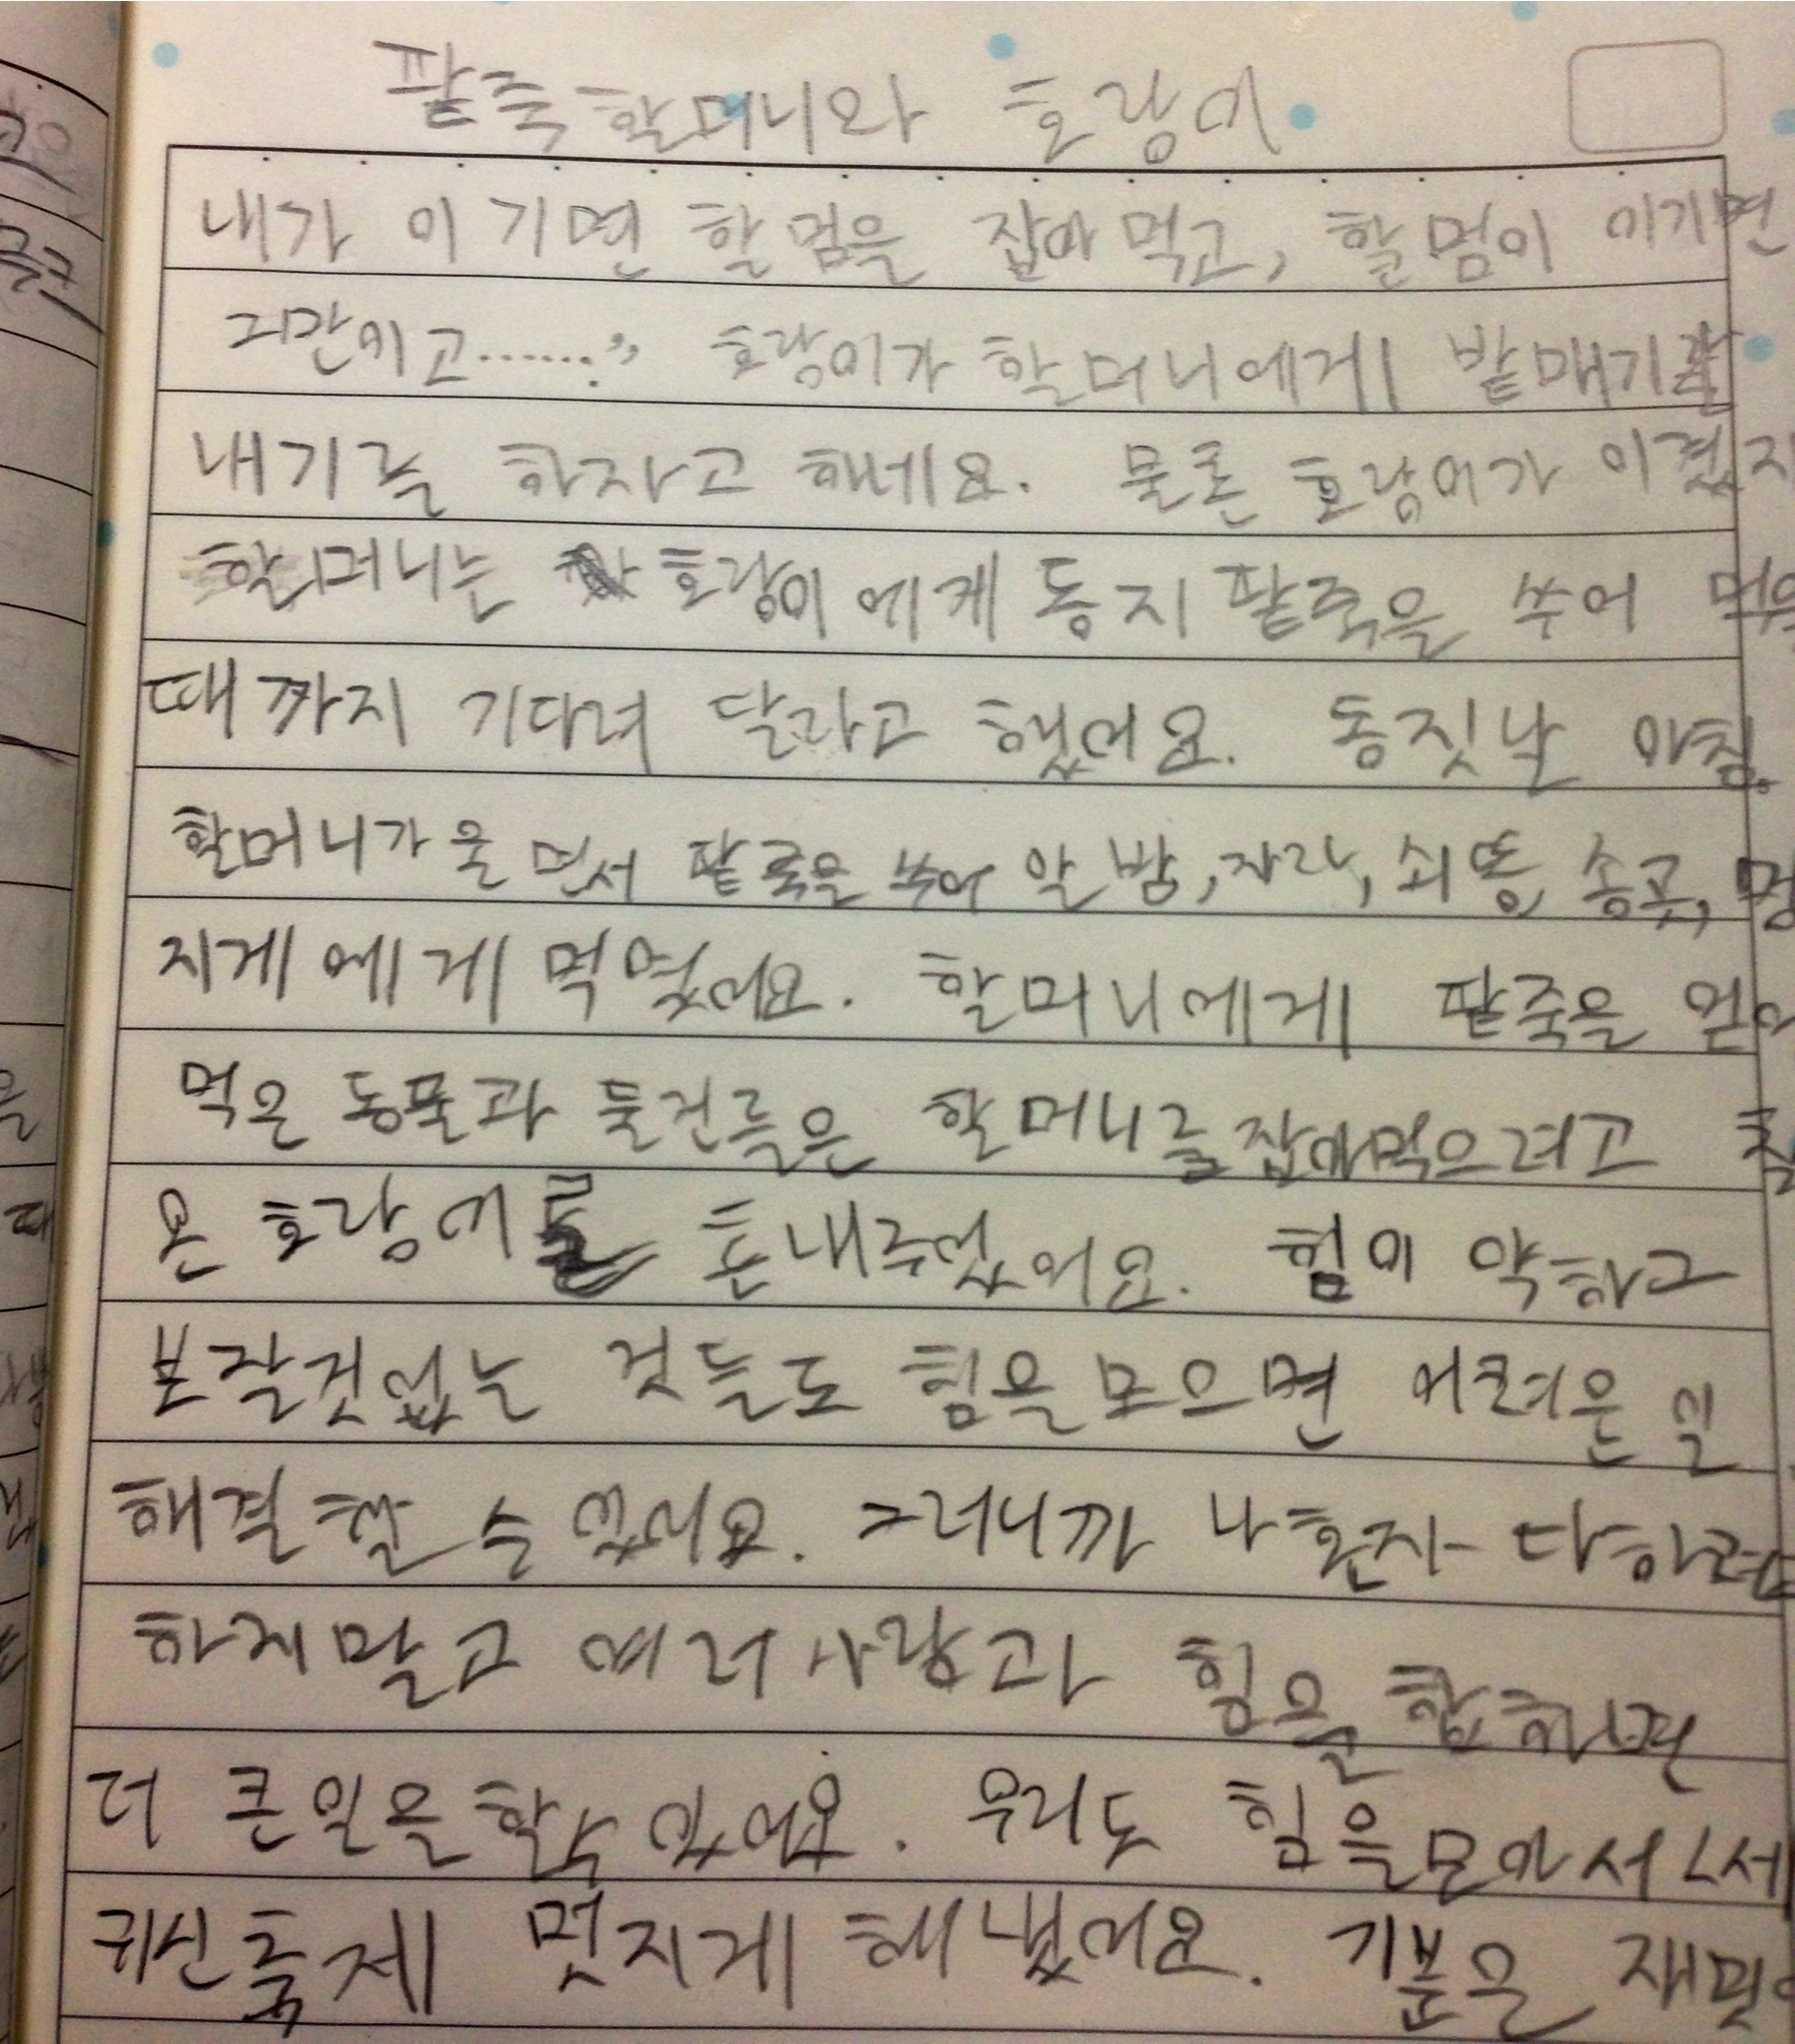 팥죽할머니와 호랑이
내가 이기면 할멈을 잡아먹고, 할멈이 이기면
그만이고......." 호랑이가 할머니에게 밭매기를
내기를 하자고 해네요. 물론 호랑이가 이겼지
할머니는 호랑이에게 동지 팥죽을 쑤어 먹을
때까지 기다려 달라고 했어요. 동짓날 아침.
할머니가 울면서 팥죽을 쑤어 알밤, 자라, 쇠똥, 송곳, 멍
지게에게 먹였어요. 할머니에게 팥죽을 얻어
먹은 동물과 물건들은 할머니를 잡아먹으려고
온 호랑이를 혼내주었어요. 힘이 약하고
보잘것없는 것들도 힘을 모으면 어려운 일
해결할 수 있어요. 그러니까 나 혼자 다하려
하지말고 여러사람과 힘을 합하면
더 큰일을할수 있어요. 우리도 힘을모아서
귀신축제 멋지게 해냈어요. 기분은